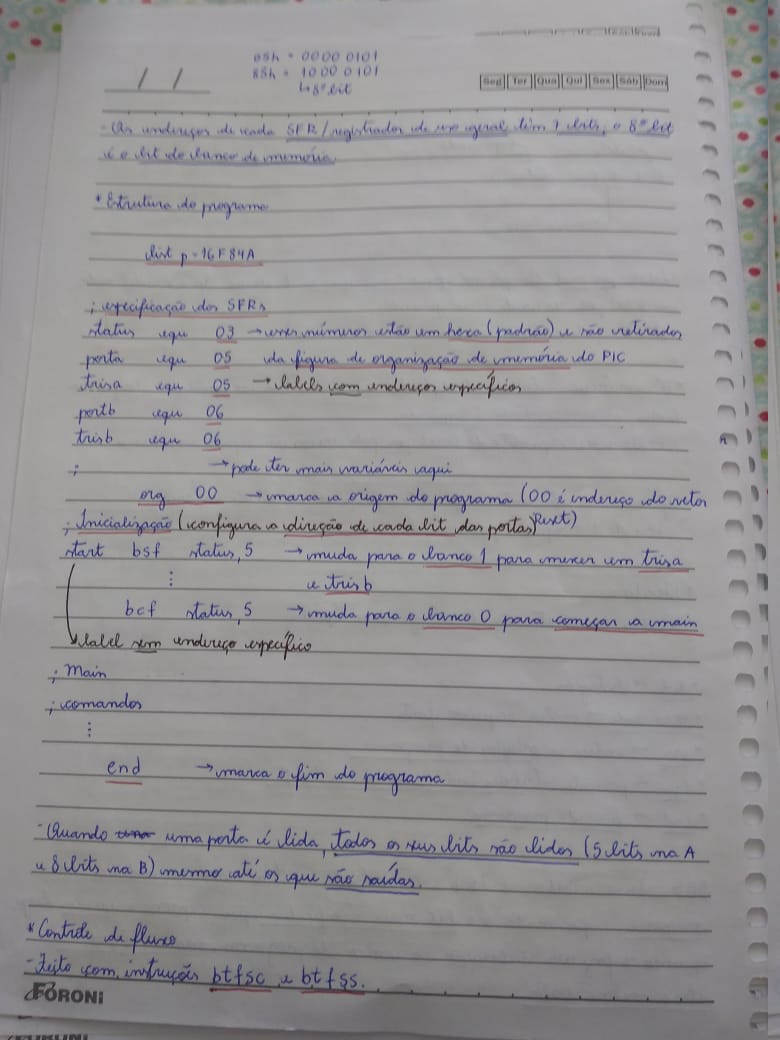 05h = 0000 0101
85h = 1000 0101
↳ 8º bit
/ /
Seg Ter Qua Qui Sex Sáb Dom
- Os endereços de cada SFR/registrador de uso geral têm 7 bits, o 8º bit
é o bit do banco de memória.
* Estrutura do programa
list p=16F84A
; especificação dos SFRs
status equ 03 → esses números estão em hexa (padrão) e são retirados
porta equ 05 da figura de organização de memória do PIC
trisa equ 05 → labels com endereços específicos
portb equ 06
trisb equ 06
; → pode ter mais variáveis aqui
org 00 → marca a origem do programa (00 é endereço do vetor
; Inicialização (configura a direção de cada bit das portas) Reset)
start bsf status, 5 → muda para o banco 1 para mexer em trisa
⋮ e trisb
bcf status, 5 → muda para o banco 0 para começar a main
label sem endereço específico
; Main
; comandos
⋮
end → marca o fim do programa
- Quando uma porta é lida, todos os seus bits são lidos (5 bits na A
e 8 bits na B) mesmo até os que são saídas.
* Controle de fluxo
- Feito com instruções btfsc e btfss.
FORONI